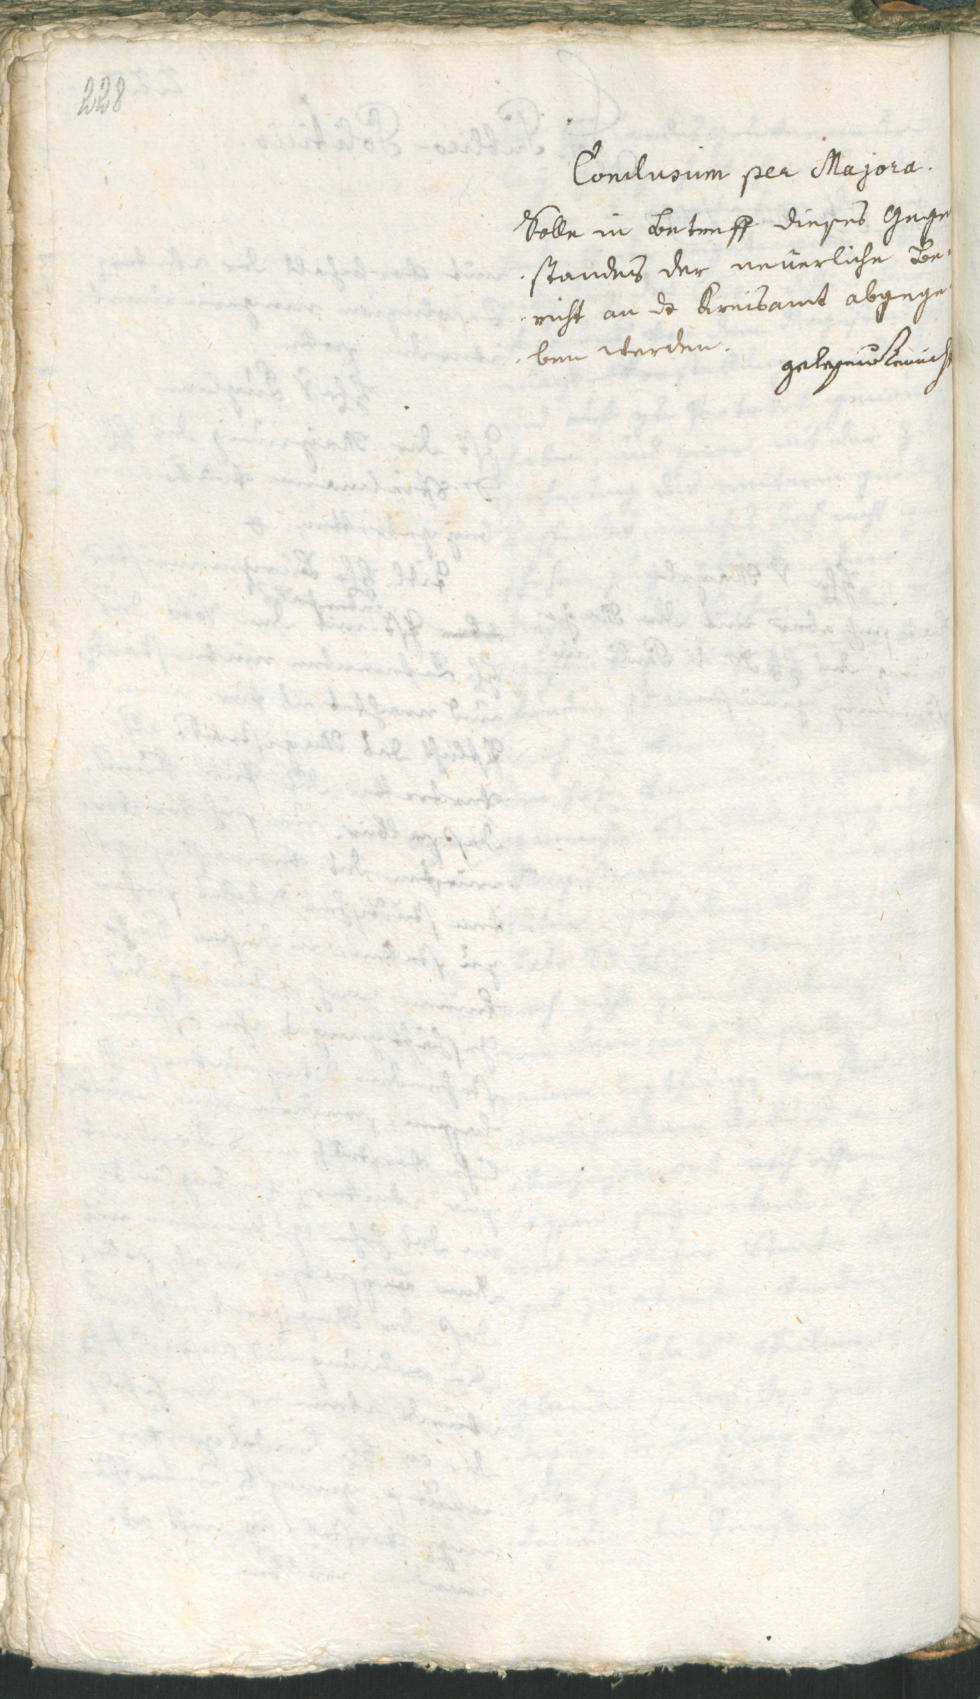 228
Conclusum per Majora.
Solle in Betreff dieses Gegen
standes der neuerliche Be-
richt an das Kreisamt abgege
ben werden.